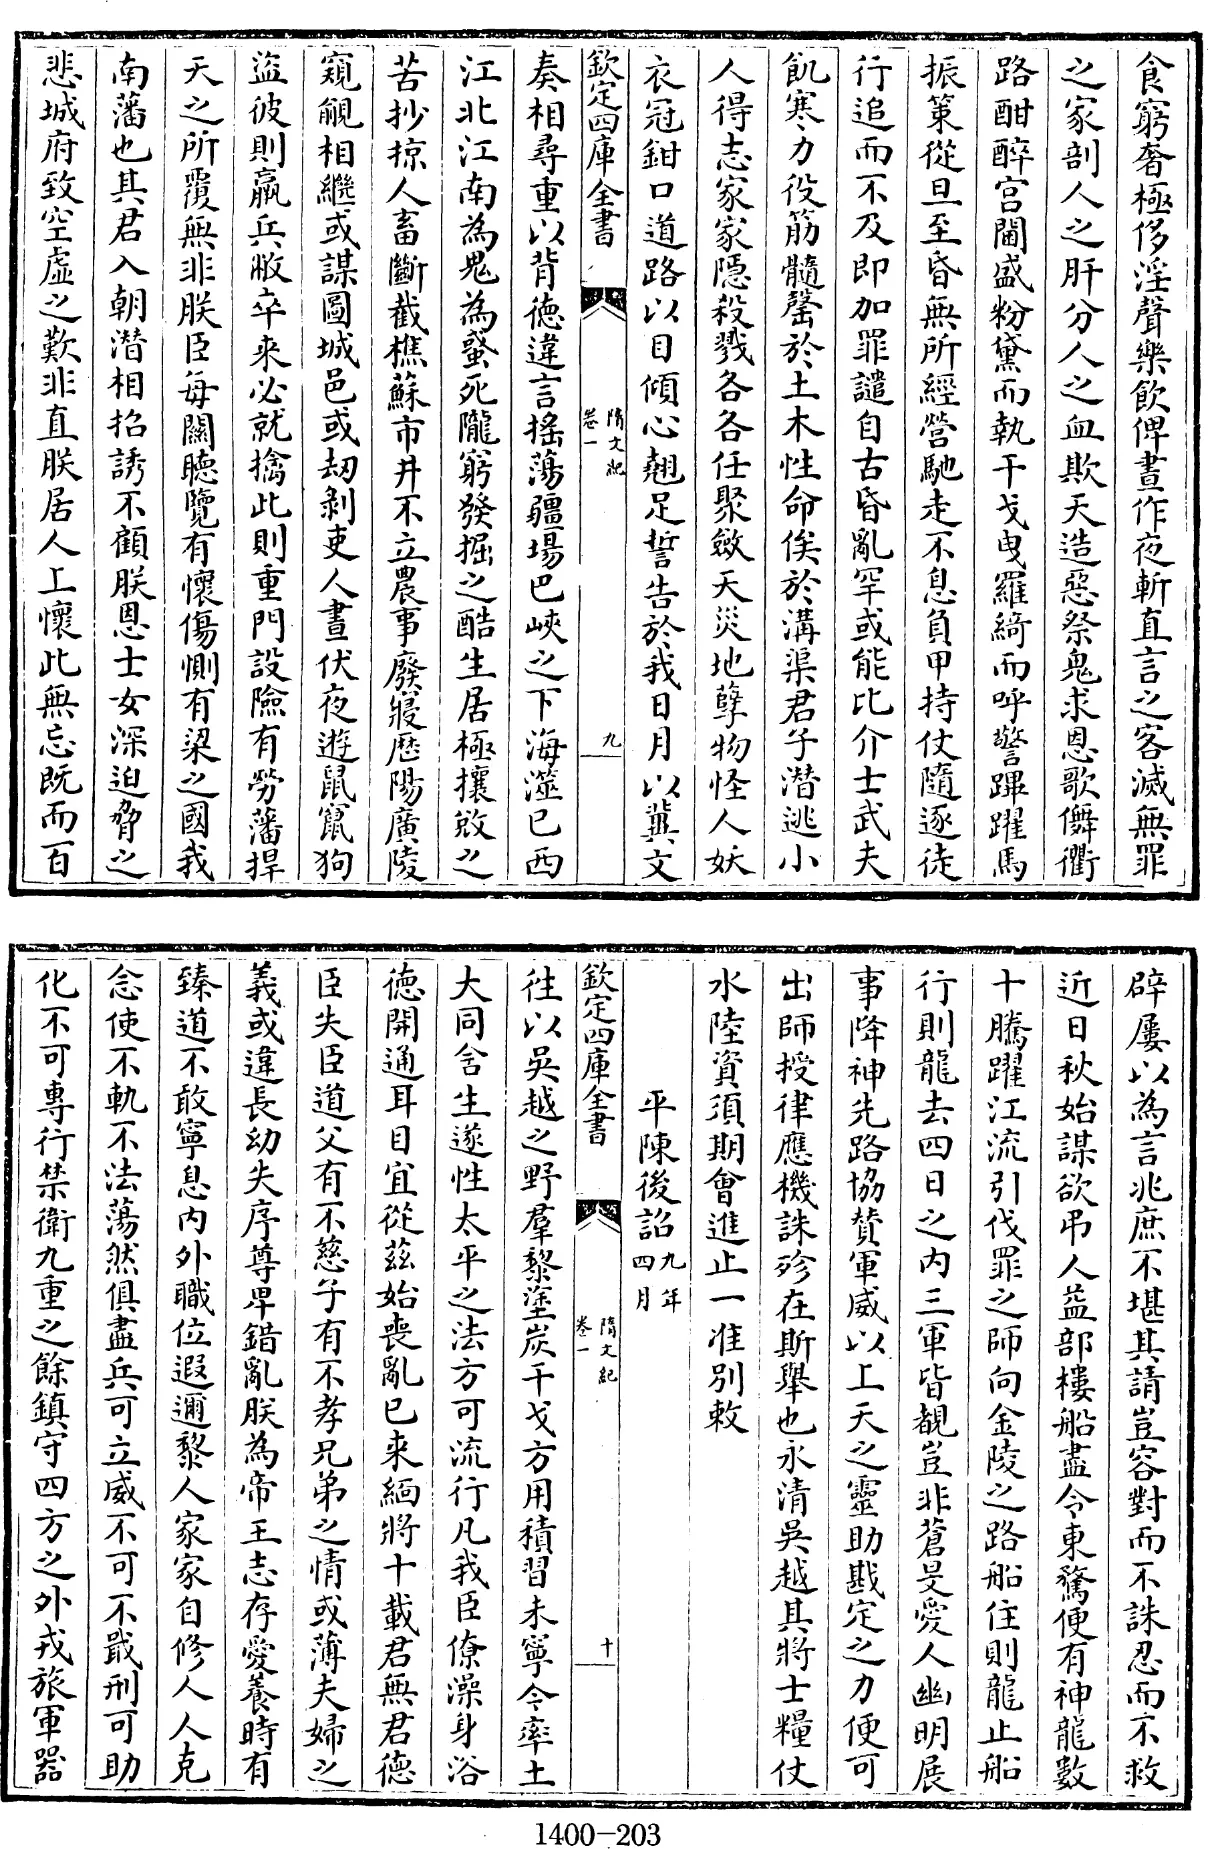 食窮奢極侈淫聲樂飲俾晝作夜斬直言之客滅無罪
之家剖人之肝分人之血欺天造惡祭鬼求恩歌儛衢
路酣醉宮閫盛粉黛而執干戈曳羅綺而呼警蹕躍馬
振策從旦至昏無所經營馳走不息負甲持仗隨逐徒
行追而不及即加罪譴自古昏亂罕或能比介士武夫
飢寒力役筋髓罄於土木性命俟於溝渠君子潛逃小
人得志家家隱殺戮各各任聚斂天災地孽物怪人妖
衣冠鉗口道路以目傾心翹足誓告於我日月以冀文
欽定四庫全書
隋文紀
卷一
九
奏相尋重以背德違言搖蕩疆場巴峽之下海澨已西
江北江南為鬼為蜮死隴窮發掘之酷生居極攘敓之
苦抄掠人畜斷截樵蘇市井不立農事廢寢歷陽廣陵
窺覦相繼或謀圖城邑或刼剝吏人晝伏夜遊鼠竄狗
盜彼則羸兵敝卒來必就擒此則重門設險有勞藩捍
天之所覆無非朕臣每關聽覽有懷傷惻有梁之國我
南藩也其君入朝潛相招誘不顧朕恩士女深迫脅之
悲城府致空虛之歎非直朕居人上懷此無忘既而百
辟屢以為言兆庶不堪其請豈容對而不誅忍而不救
近日秋始謀欲弔人益部樓船盡令東騖便有神龍數
十騰躍江流引伐罪之師向金陵之路船住則龍止船
行則龍去四日之內三軍皆覩豈非蒼旻愛人幽明展
事降神先路協贊軍威以上天之靈助戡定之力便可
出師授律應機誅殄在斯舉也永清吳越其將士糧仗
水陸資須期會進止一准別敕
平陳後詔九年四月
欽定四庫全書
隋文紀
卷一
十
往以吳越之野羣黎塗炭干戈方用積習未寧今率土
大同含生遂性太平之法方可流行凡我臣僚澡身浴
德開通耳目宜從茲始喪亂已來緬將十載君無君德
臣失臣道父有不慈子有不孝兄弟之情或薄夫婦之
義或違長幼失序尊卑錯亂朕為帝王志存愛養時有
臻道不敢寧息內外職位遐邇黎人家家自修人人克
念使不軌不法蕩然俱盡兵可立威不可不戢刑可助
化不可專行禁衛九重之餘鎮守四方之外戎旅軍器
1400-203